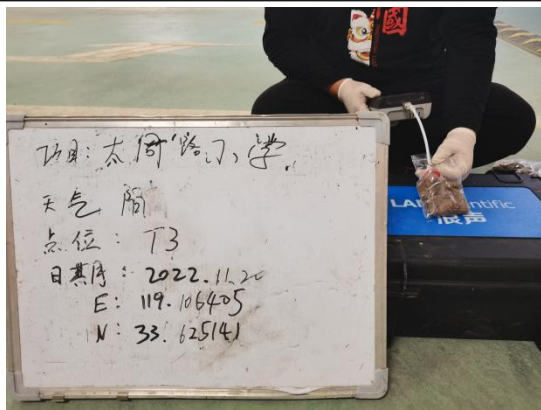 项目：太周路小学
天气 阴
点位：T3
日期：2022.11.20
E：119.106405
N：33.625141
國
LAN scientific
浪声